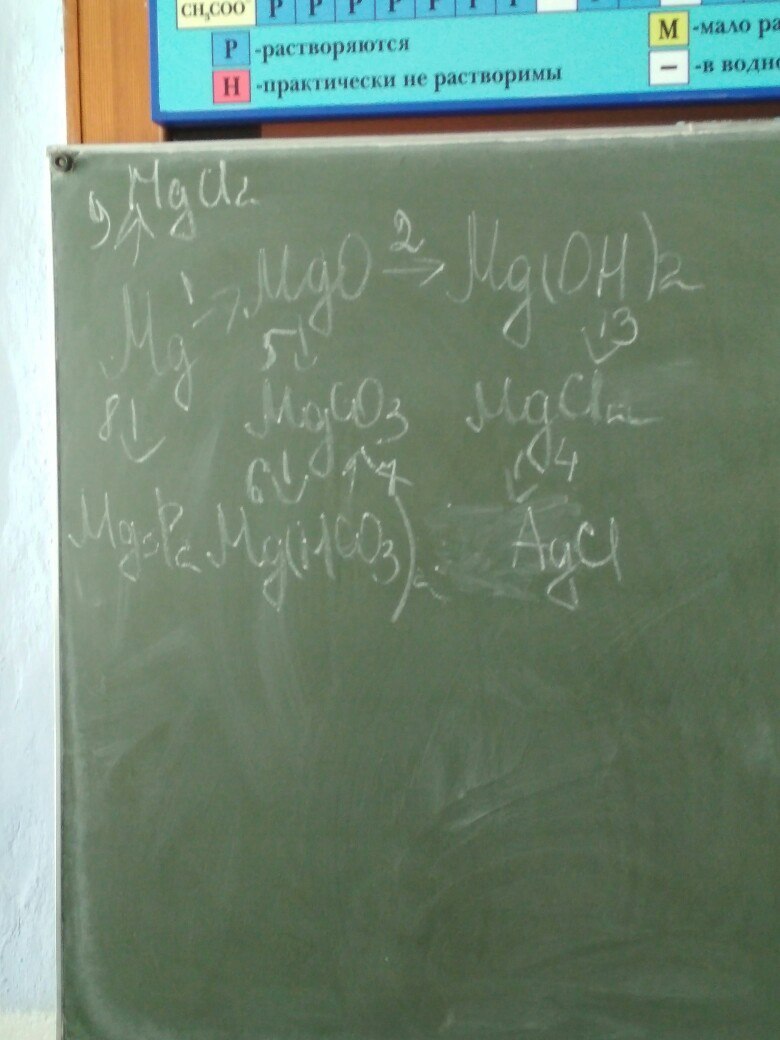 CH₃COO⁻ Р Р Р Р Р Р Р
Р -растворяются
М -мало
Н -практически не растворимы
– -в
9 MgCl₂
Mg 1 → MgO 2 → Mg(OH)₂
8 ↓ 5 ↓ ↓ 3
MgCO₃ MgCl₂
6 ↓ ↑ 7 ↓ 4
Mg₃P₂ Mg(HCO₃)₂ AgCl